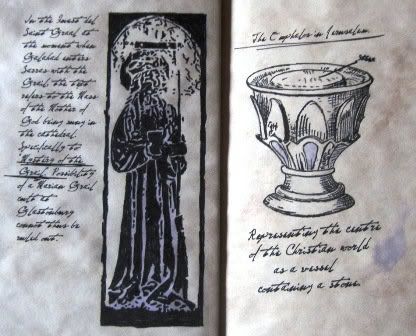 In the Quest del
Saint Graal at
the moment when
Galahad enters
Sarras with the
Grail, the text
refers to the Mass
of the Mother of
God being sung in
the cathedral.
Specifically the
Mystery of the
Grail. Possibility
of a Marian Grail
cult at
Glastonbury
cannot thus be
ruled out.
The Omphalos in Jerusalem
Representing the centre
of the Christian world
as a vessel
containing a stone.